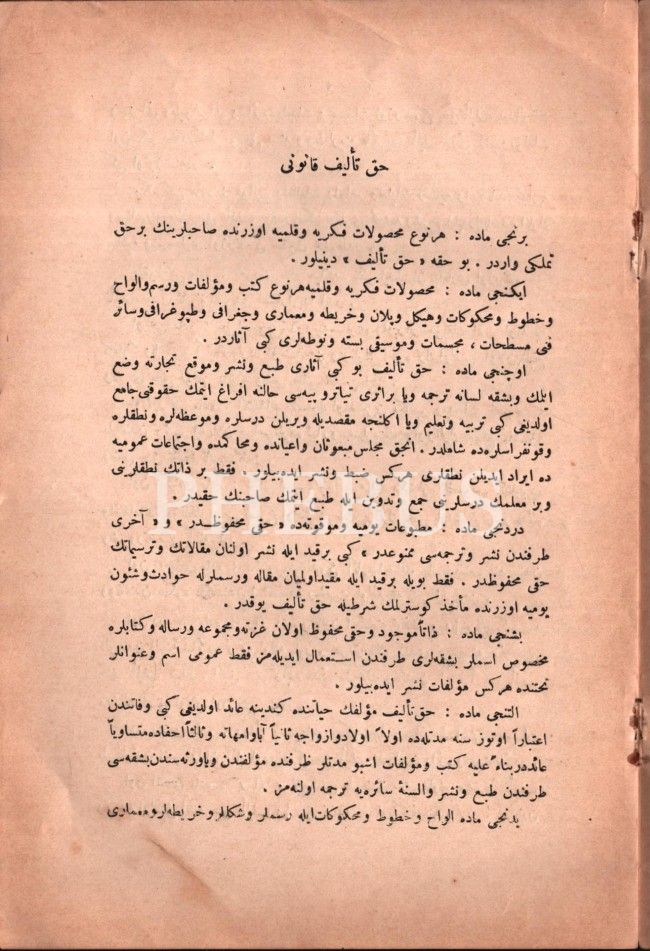 حق تأليف قانونى
برنجى ماده : هرنوع محصولات فكريه وقلميه اوزرنده صاحبلرينك برحق
تملكى واردر . بو حقه « حق تأليف » دينيلور .
ايكنجى ماده : محصولات فكريه وقلميه هرنوع كتب ومؤلفات ورسم والواح
وخطوط ومحكوكات وهيكل وپلان وخريطه ومعمارى وجغرافى وطپوغرافى وسائر
فنى مسطحات ، مجسمات وموسيقى بسته ونوطه لرى كبى آثاردر .
اوچنجى ماده : حق تأليف بو كبى آثارى طبع ونشر وموقع تجارته وضع
ايتلك وبشقه لسانه ترجمه ويا براثرى تياترو پيه سى حالنه افراغ ايتمك حقوقنى جامع
اولديغى كبى تربيه وتعليم ويا اكلنجه مقصديله ويريلن درسلره وموعظه لره ونطقلره
وقونفرانسلره ده شاملدر . انجق مجلس مبعوثان واعيانده ومحاكمده واجتماعات عموميه
ده ايراد ايديلن نطقلرى هركس ضبط ونشر ايده بيلور . فقط بر ذاتك نطقلرينى
وبر معلمك درسلرينى جمع وتدوين ايله طبع ايتمك صاحبنك حقيدر .
دردنجى ماده : مطبوعات يوميه وموقوته ده « حقى محفوظدر » و « آخرى
طرفندن نشر وترجمه سى ممنوعدر » كبى برقيد ايله نشر اولنان مقالاتك وترسيماتك
حقى محفوظدر . فقط بويله برقيد ايله مقيد اولميان مقاله ورسملرله حوادث وشئون
يوميه اوزرنده مأخذ كوسترلمك شرطيله حق تأليف يوقدر .
بشنجى ماده : ذاتاً موجود وحقى محفوظ اولان غزته ومجموعه ورساله وكتابلره
مخصوص اسملر بشقه لرى طرفندن استعمال ايديله مز فقط عمومى اسم وعنوانلر
تحتنده هركس مؤلفات نشر ايده بيلور .
التنجى ماده : حق تأليف مؤلفك حياتنده كندينه عائد اولديغى كبى وفاتندن
اعتباراً اوتوز سنه مدتله ده اولاً اولاد وازواجه ثانياً آبا وامهاته وثالثاً احفاده متساوياً
عائددر بناءً عليه كتب ومؤلفات اشبو مدتلر ظرفنده مؤلفندن وياورثه سندن بشقه سى
طرفندن طبع ونشر والسنهٔ سائره يه ترجمه اولنه مز .
يدنجى ماده الواح وخطوط ومحكوكات ايله رسملر وشكللر وخريطه لر ومعمارى
PHEBUS